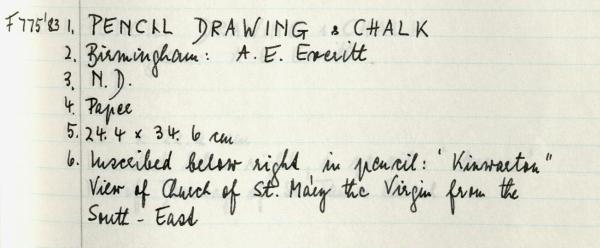 F775'83 1. PENCIL DRAWING & CHALK
2. Birmingham: A. E. Everitt
3. N. D.
4. Paper
5. 24.4 x 34.6 cm
6. Inscribed below right in pencil: 'Kinwarton"
View of Church of St. Mary the Virgin from the
South - East